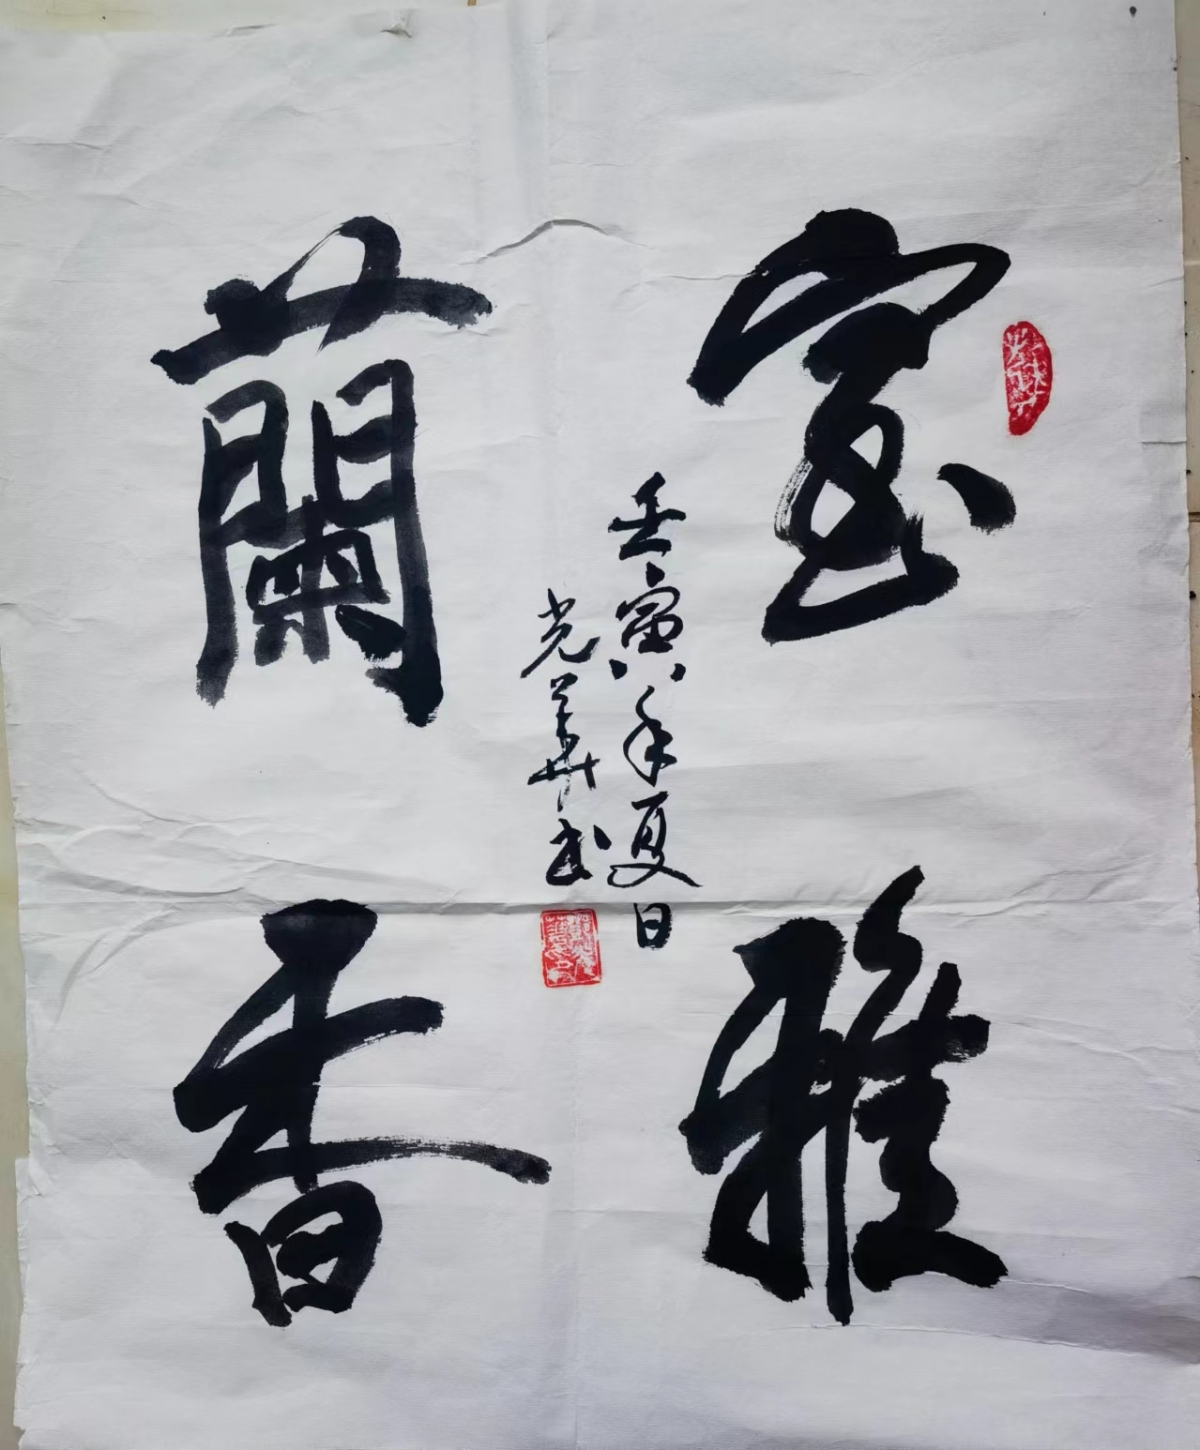 室雅
蘭香
壬寅年夏日
光華书